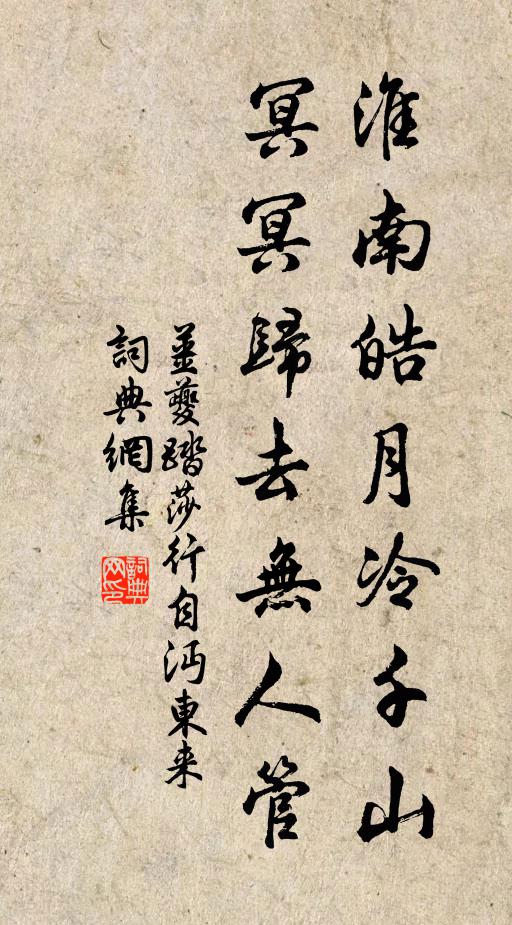 淮南皓月冷千山
冥冥歸去無人管
姜夔踏莎行自沔東来
詞典網集
詞典
网印